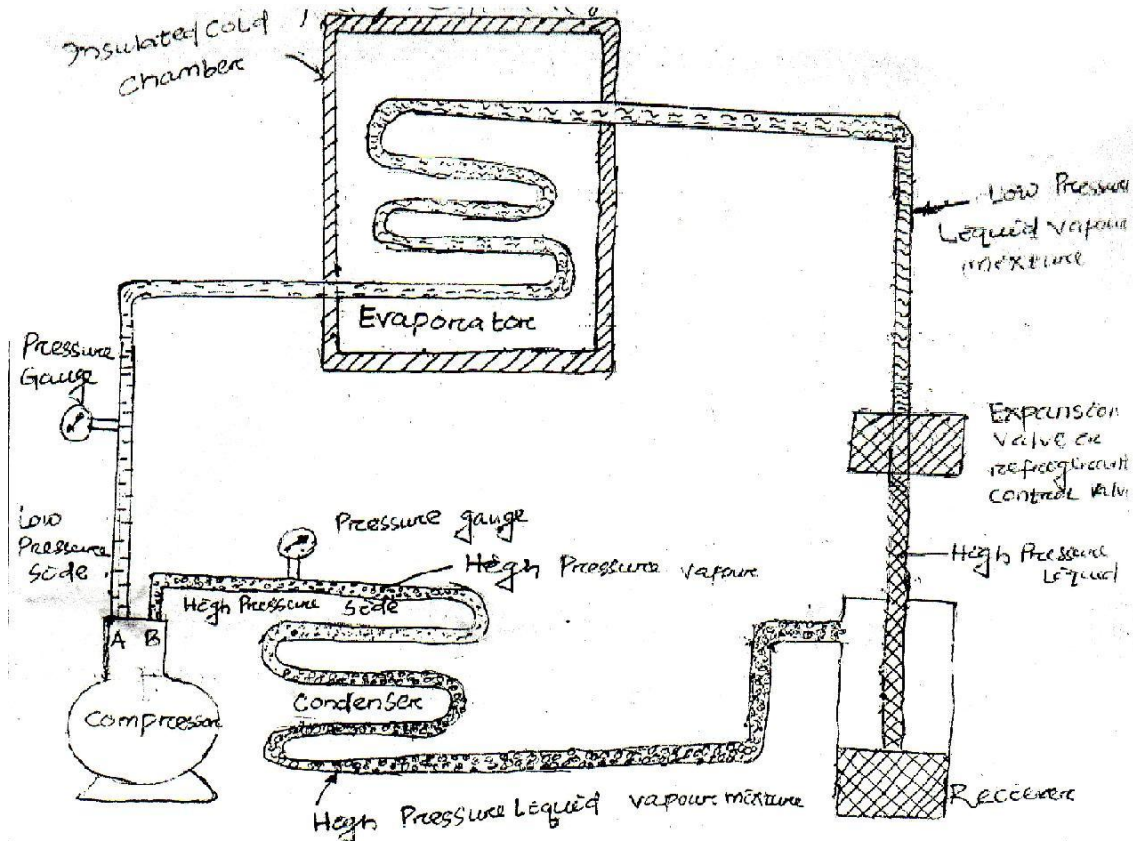 Insulated cold
chamber
Low Pressure
Liquid vapour
mixture
Evaporator
Pressure
Gauge
Expansion
valve or
refrigerant
control valv
Pressure gauge
High Pressure vapour
Low
Pressure
side
High Pressure side
High Pressure
Liquid
A B
Condenser
Compressor
Receiver
High Pressure Liquid vapour mixture